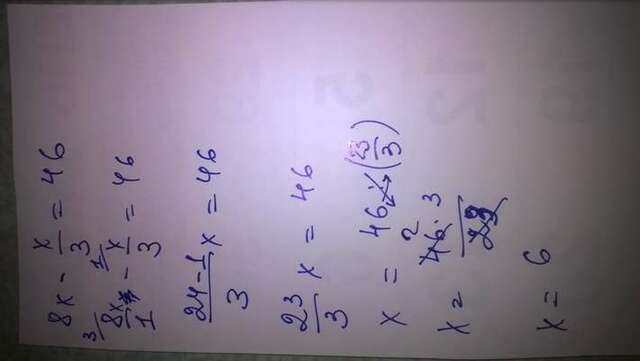 8x - x/3 = 46
3/ 8x/1 - 1/ x/3 = 46
24-1/3 x = 46
23/3 x = 46
x = 46 : (23/3)
x = 46 · 3 / 23
x = 6